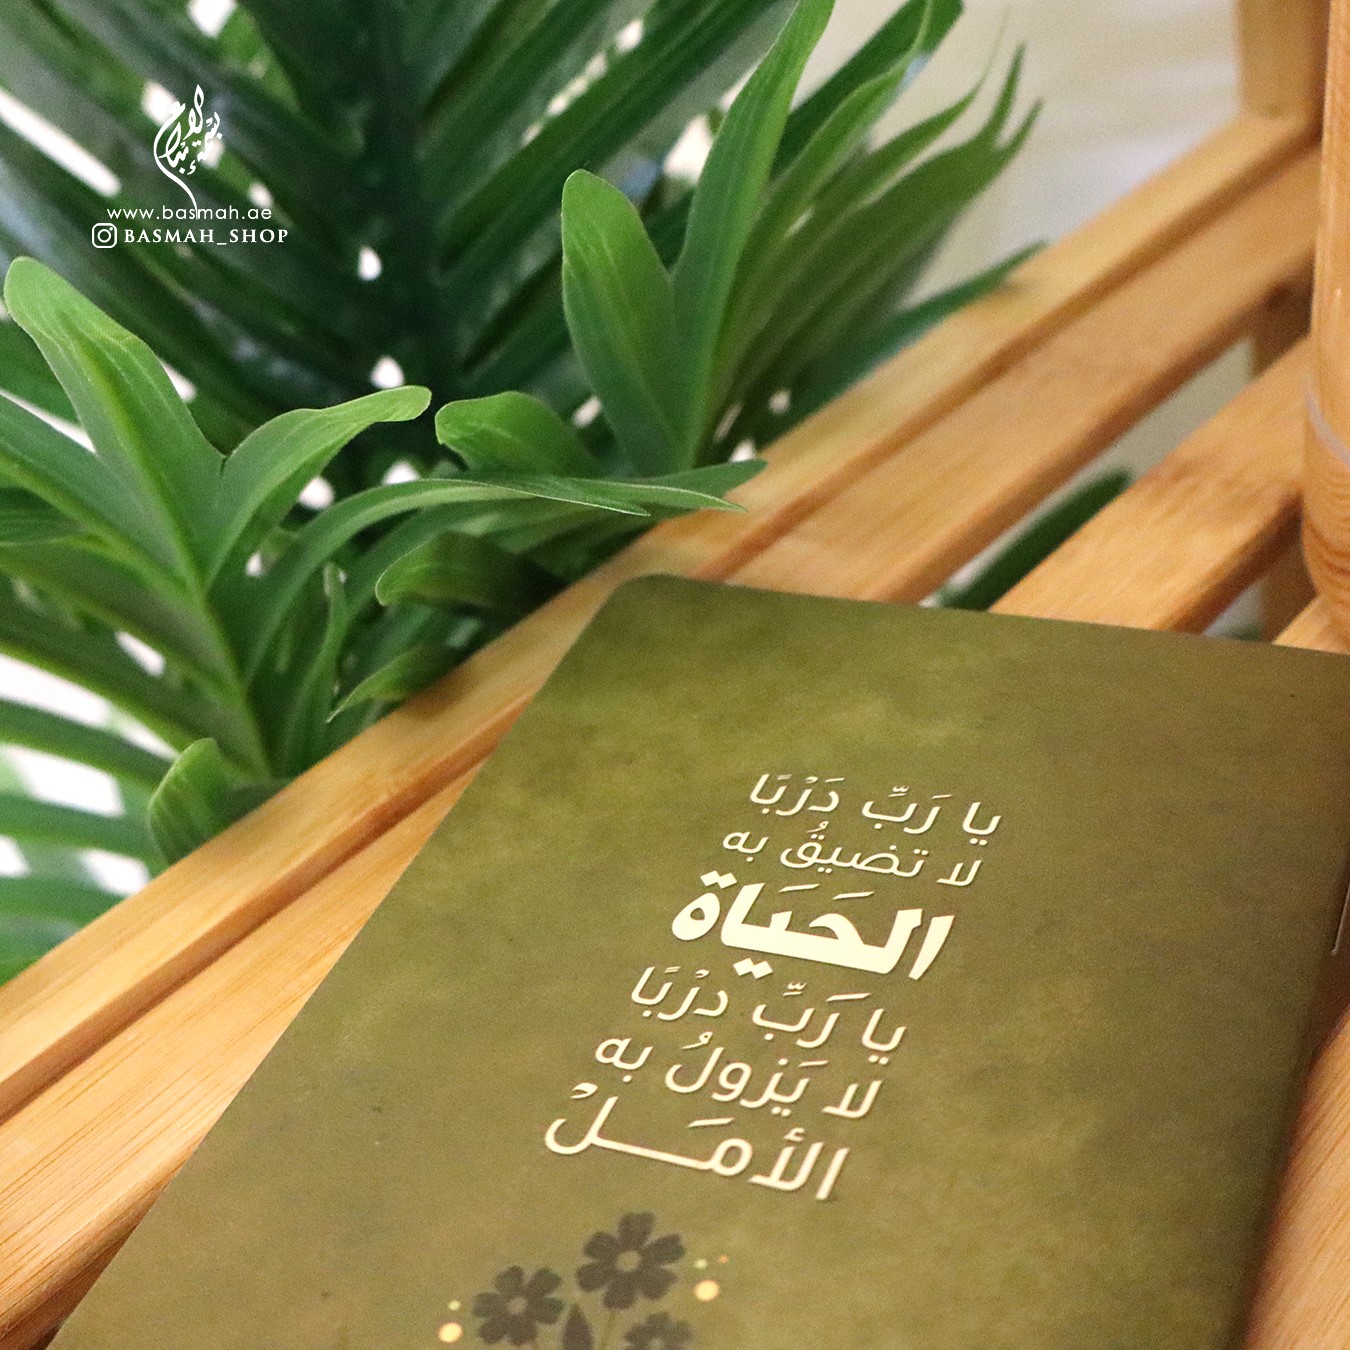 www.basmah.ae
BASMAH_SHOP
يا رَبِّ دَرْبًا
لا تضيقُ به
الحَيَاة
يا رَبِّ درْبًا
لا يَزولُ به
الأمَـــلْ